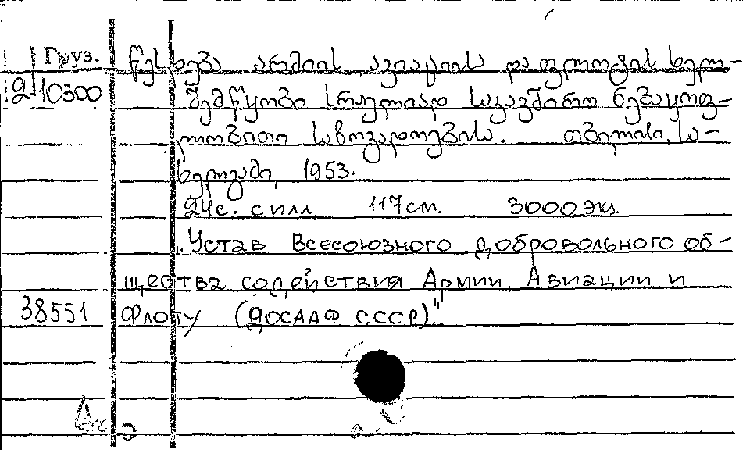 Груз. წესდება არმიის, ავიაციის და ფლოტის ხელ-
2-10300 შემწყობი სრულიად საკავშირო ნებაყოფ-
ლობითი საზოგადოებისა. თბილისი, სა-
ხელგამი, 1953.
24с. с илл. 17см. 3000экз.
„Устав Всесоюзного добровольного об-
щества содействия Армии, Авиации и
38551 Флоту (ДОСААФ СССР)"